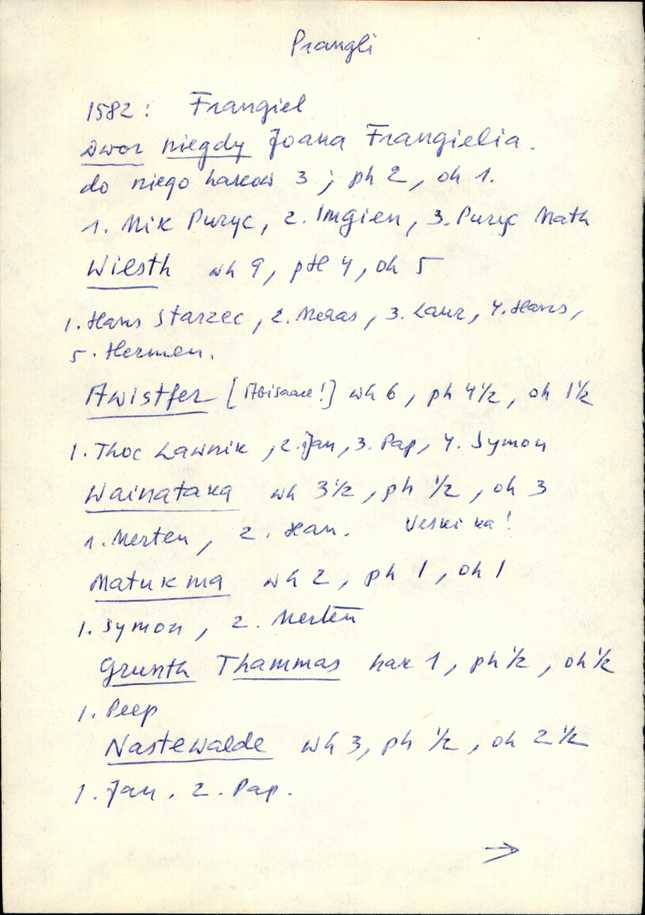 Prangli
1582: Frangiel
Dwor niegdy Joana Frangielia.
do niego hakow 3; ph 2, oh 1.
1. Mik Puryc, 2. Imgien, 3. Puryc Math
Wiesth wh 9, ph 4, oh 5
1. Hans Starzec, 2. Meras, 3. Laur, 4. Hans,
5. Hermen.
Awistfer [Abisaare!] wh 6, ph 4½, oh 1½
1. Thoc Lawnik, 2. Jan, 3. Pap, 4. Symon
Wainataka wh 3½, ph ½, oh 3
1. Merten, 2. Han. Veski ka!
Matukma wh 2, ph 1, oh 1
1. Symon, 2. Merten
Grunth Thammas hak 1, ph ½, oh ½
1. Peep
Nastewalde wh 3, ph ½, oh 2½
1. Jan. 2. Pap.
→